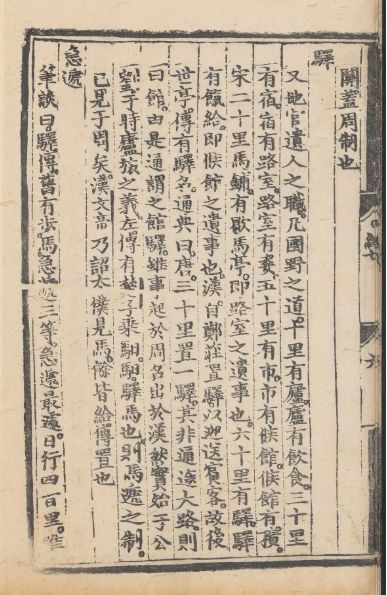 關蓋周制也
驛
又地官遺人之職凡國野之道十里有廬廬有飲食三十里
有宿宿有路室路室有委五十里有市市有候館候館有積
宋二十里馬鋪有歇馬亭即路室之遺事也六十里有驛驛
有餼給即候館之遺事也漢自鄭莊置驛以迎送賓客故後
世亭傳有驛名通典曰唐三十里置一驛其非通途大路則
曰館由是通謂之館驛雖事起於周名出於漢然實始于公
劉于時廬旅之義左傳有楚子乘馹馹驛馬也則馬遞之制
已見于周矣漢文帝乃詔太僕見馬餘皆給傳置也
急遞
筆談曰驛傳舊有步馬急遞三等急遞最遽日行四百里唯